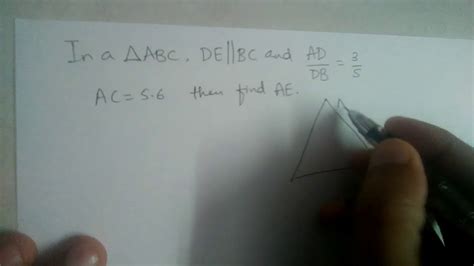 In a △ABC, DE||BC and AD/DB = 3/5
AC = 5.6 then find AE.